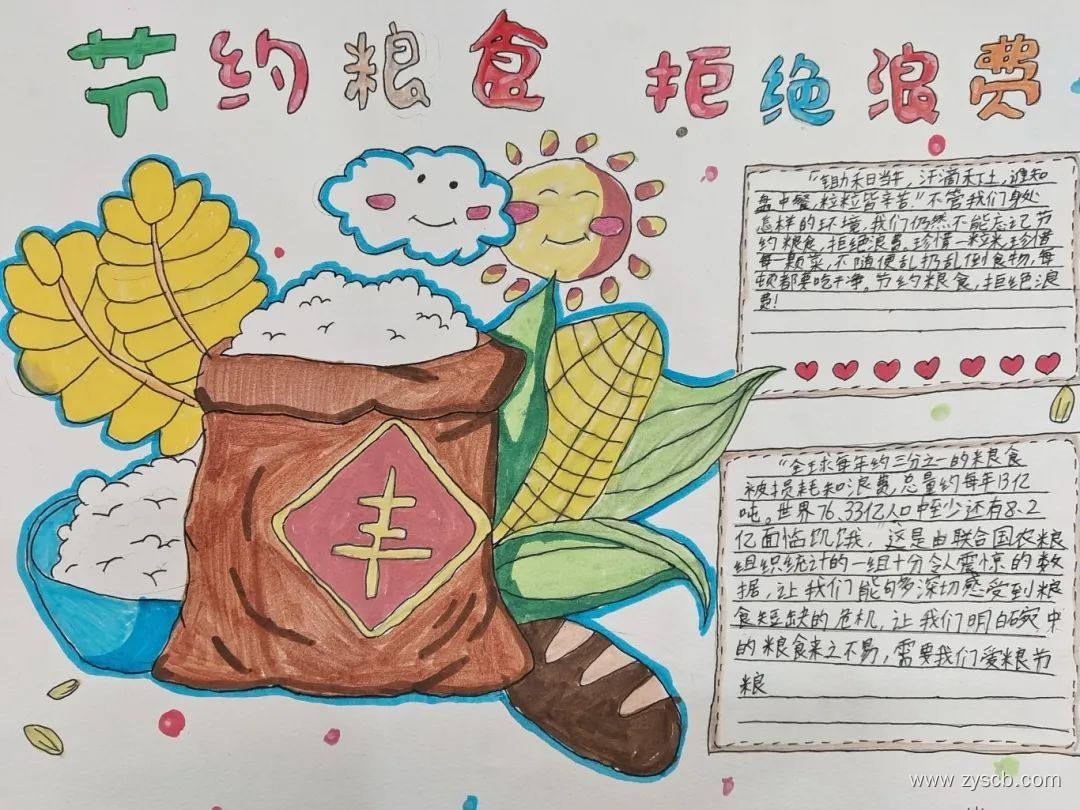 节约粮食 拒绝浪费
"锄禾日当午，汗滴禾下土，谁知
盘中餐，粒粒皆辛苦。"不管我们身处
怎样的环境，我们仍然不能忘记节
约粮食，拒绝浪费。珍惜一粒米，珍惜
每一颗菜，不随便乱扔乱倒食物，每
顿都要吃干净。节约粮食，拒绝浪
费！
丰
"全球每年约三分之一的粮食
被损耗和浪费，总量约每年13亿
吨。世界76.33亿人口中至少还有8.2
亿面临饥饿，这是由联合国农粮
组织统计的一组十分令人震惊的数
据，让我们能够深切感受到粮
食短缺的危机，让我们明白碗中
的粮食来之不易，需要我们爱粮节
粮
www.zyscb.com